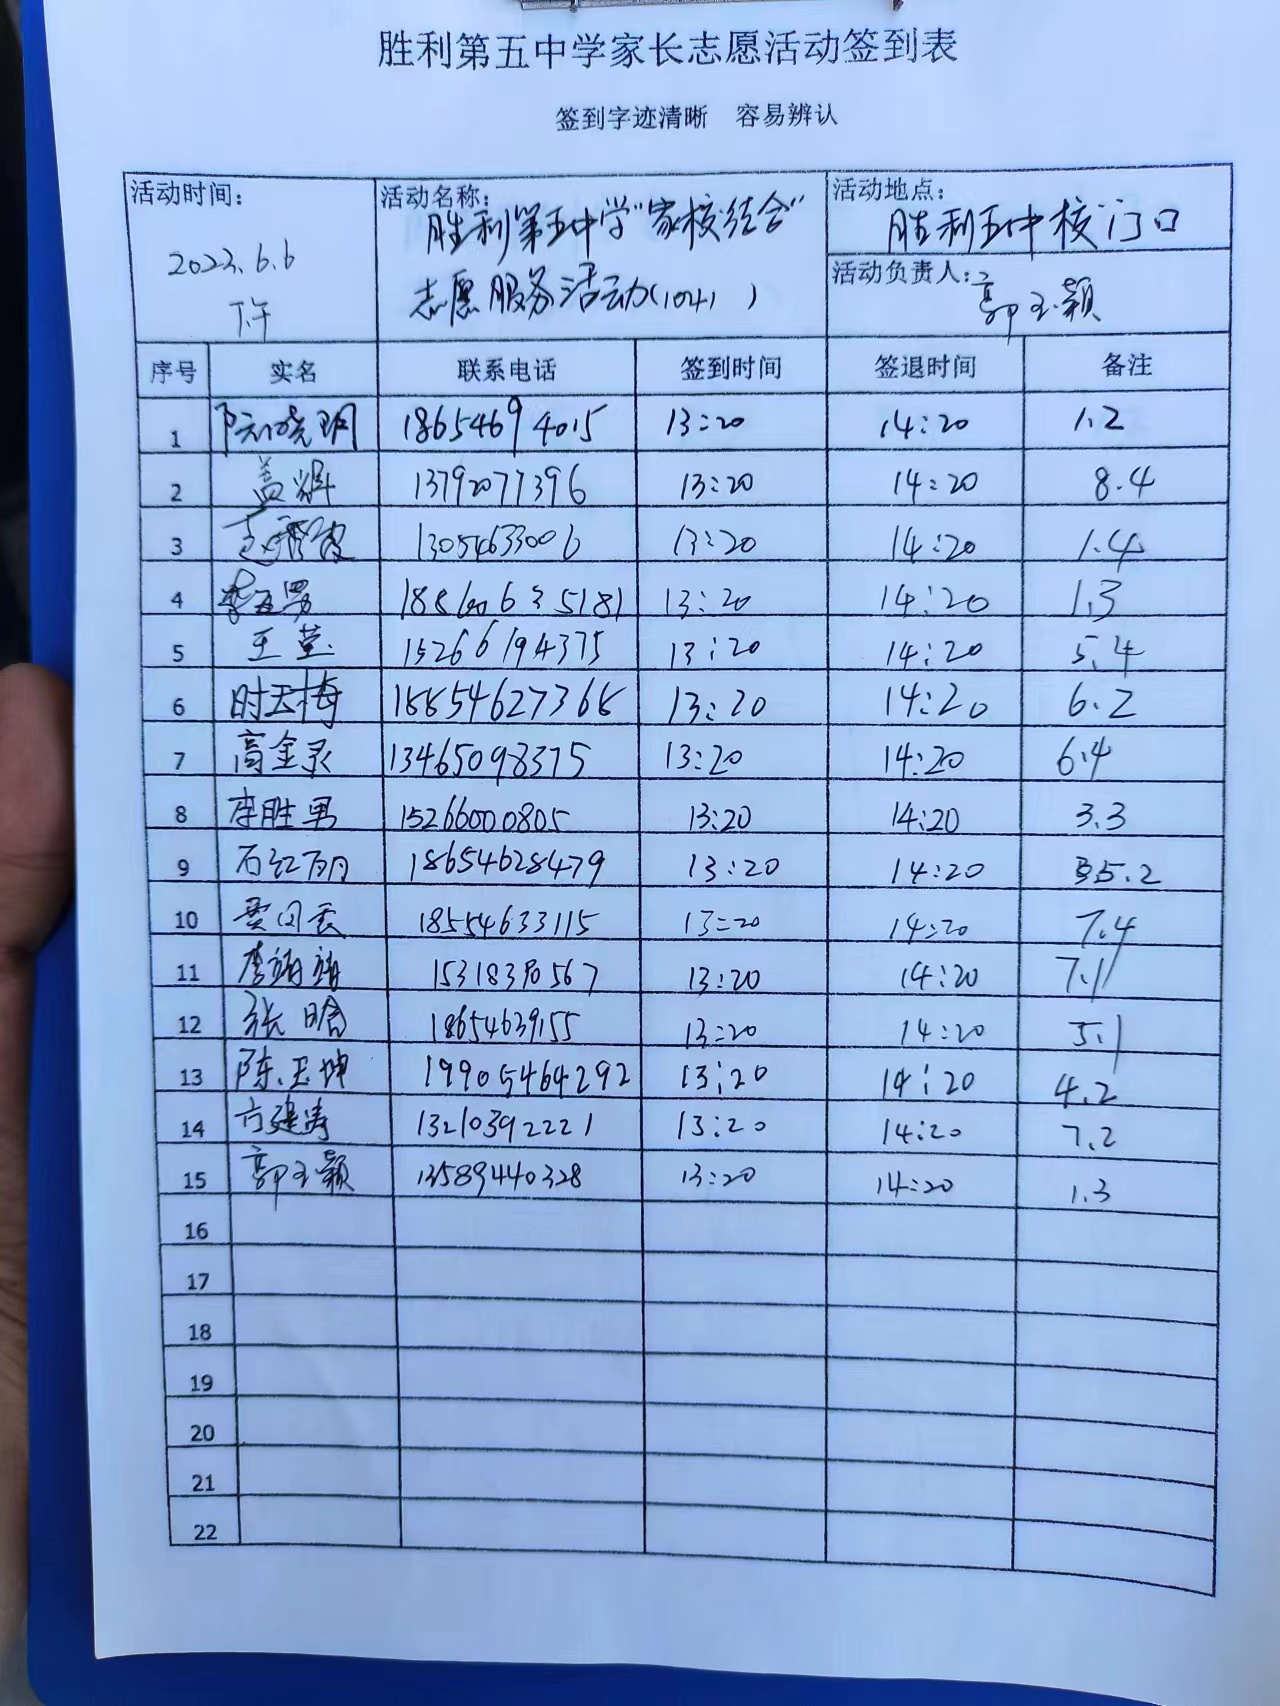 胜利第五中学家长志愿活动签到表
签到字迹清晰 容易辨认
活动时间:
2023.6.6
下午
活动名称:
胜利第五中学"家校结合"
志愿服务活动(1041)
活动地点:
胜利五中校门口
活动负责人: 郭玉颖
序号 实名 联系电话 签到时间 签退时间 备注
1 18654694015 13:20 14:20 1.2
2 盖辉 13792077396 13:20 14:20 8.4
3 13054633006 13:20 14:20 1.4
4 13:20 14:20 1.3
5 王莹 15266194375 13:20 14:20 5.4
6 时玉梅 18854627368 13:20 14:20 6.2
7 高金录 13465098375 13:20 14:20 6.4
8 李胜男 15266000805 13:20 14:20 3.3
9 石红丽 18654628479 13:20 14:20 5.2
10 18554633115 13:20 14:20 7.4
11 李娟娟 13:20 14:20 7.1
12 张晗 18654639155 13:20 14:20 5.1
13 陈玉坤 19905464292 13:20 14:20 4.2
14 方建涛 13210392221 13:20 14:20 7.2
15 郭玉颖 13589440328 13:20 14:20 1.3
16
17
18
19
20
21
22